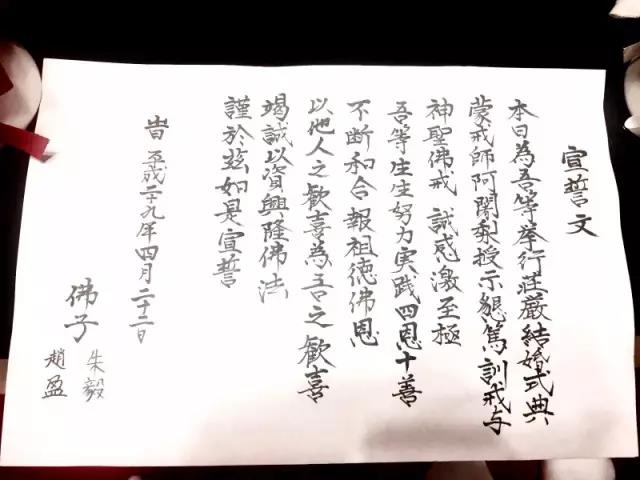 宣誓文
本日為吾等举行莊厳結婚式典
蒙戒師阿闍梨授示懇篤訓戒与
神聖佛戒 誠感激至極
吾等生生努力実践四恩十善
不断和合報祖徳佛恩
以他人之歓喜為吾之歓喜
竭誠以資興隆佛法
謹於茲如是宣誓
旹 平成二十九年四月二十二日
佛子 朱毅
趙盈